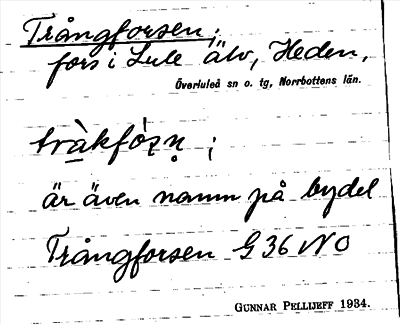 Trångforsen;
fors i Lule älv, Heden,
Överluleå sn o. tg, Norrbottens län.
tràkfósṇ ;
är även namn på bydel
Trångforsen G 36 NO
GUNNAR PELLIJEFF 1934.